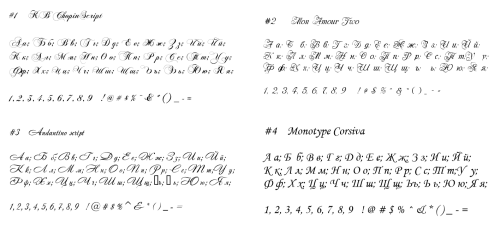 #1 K B Chopin Script
Аа; Бб; Вв; Гг; Дд; Ее; Жж; Зз; Ии; Йй;
Кк; Лл; Мм; Нн; Оо; Пп; Рр; Сс; Тт; Уу;
Фф; Хх; Цц; Чч; Шш; Щщ; Ъъ; Ьь; Юю; Яя;
1, 2, 3, 4, 5, 6, 7, 8, 9 ! @ # $ % ^ & * ( ) _ - =
#2 Mon Amour Two
Аа; Бб; Вв; Гг; Дд; Ее; Жж; Зз; Ии; Йй;
Кк; Лл; Мм; Нн; Оо; Пп; Рр; Сс; Тт; Уу;
Фф; Хх; Цц; Чч; Шш; Щщ; ь; Юю; Яя;
1, 2, 3, 4, 5, 6, 7, 8, 9 ! # $ % ^ & * ( ) _ - =
#3 Andantino script
Аа; Бб; Вв; Гг; Дд; Ее; Жж; Зз; Ии; Йй;
Кк; Лл; Мм; Нн; Оо; Пп; Рр; Сс; Тт; Уу;
Фф; Хх; Цц; Чч; Шш; Щщ; Юю; Яя;
1, 2, 3, 4, 5, 6, 7, 8, 9 ! @ # $ % ^ & * ( ) _ - =
#4 Monotype Corsiva
Аа; Бб; Вв; Гг; Дд; Ее; Жж; Зз; Ии; Йй;
Кк; Лл; Мм; Нн; Оо; Пп; Рр; Сс; Тт; Уу;
Фф; Хх; Цц; Чч; Шш; Щщ; Ъъ; Ьь; Юю; Яя;
1, 2, 3, 4, 5, 6, 7, 8, 9 ! @ # $ % ^ & * ( ) _ - =